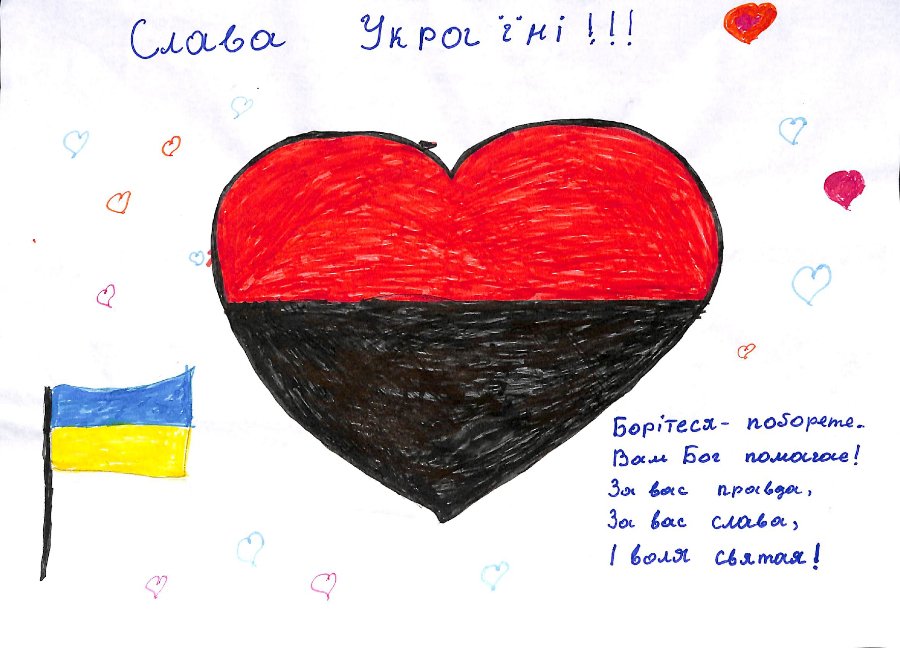 Слава Украї'їні!!!
Борітеся - поборете.
Вам Бог помагає!
За вас правда,
За вас слава,
І воля святая!